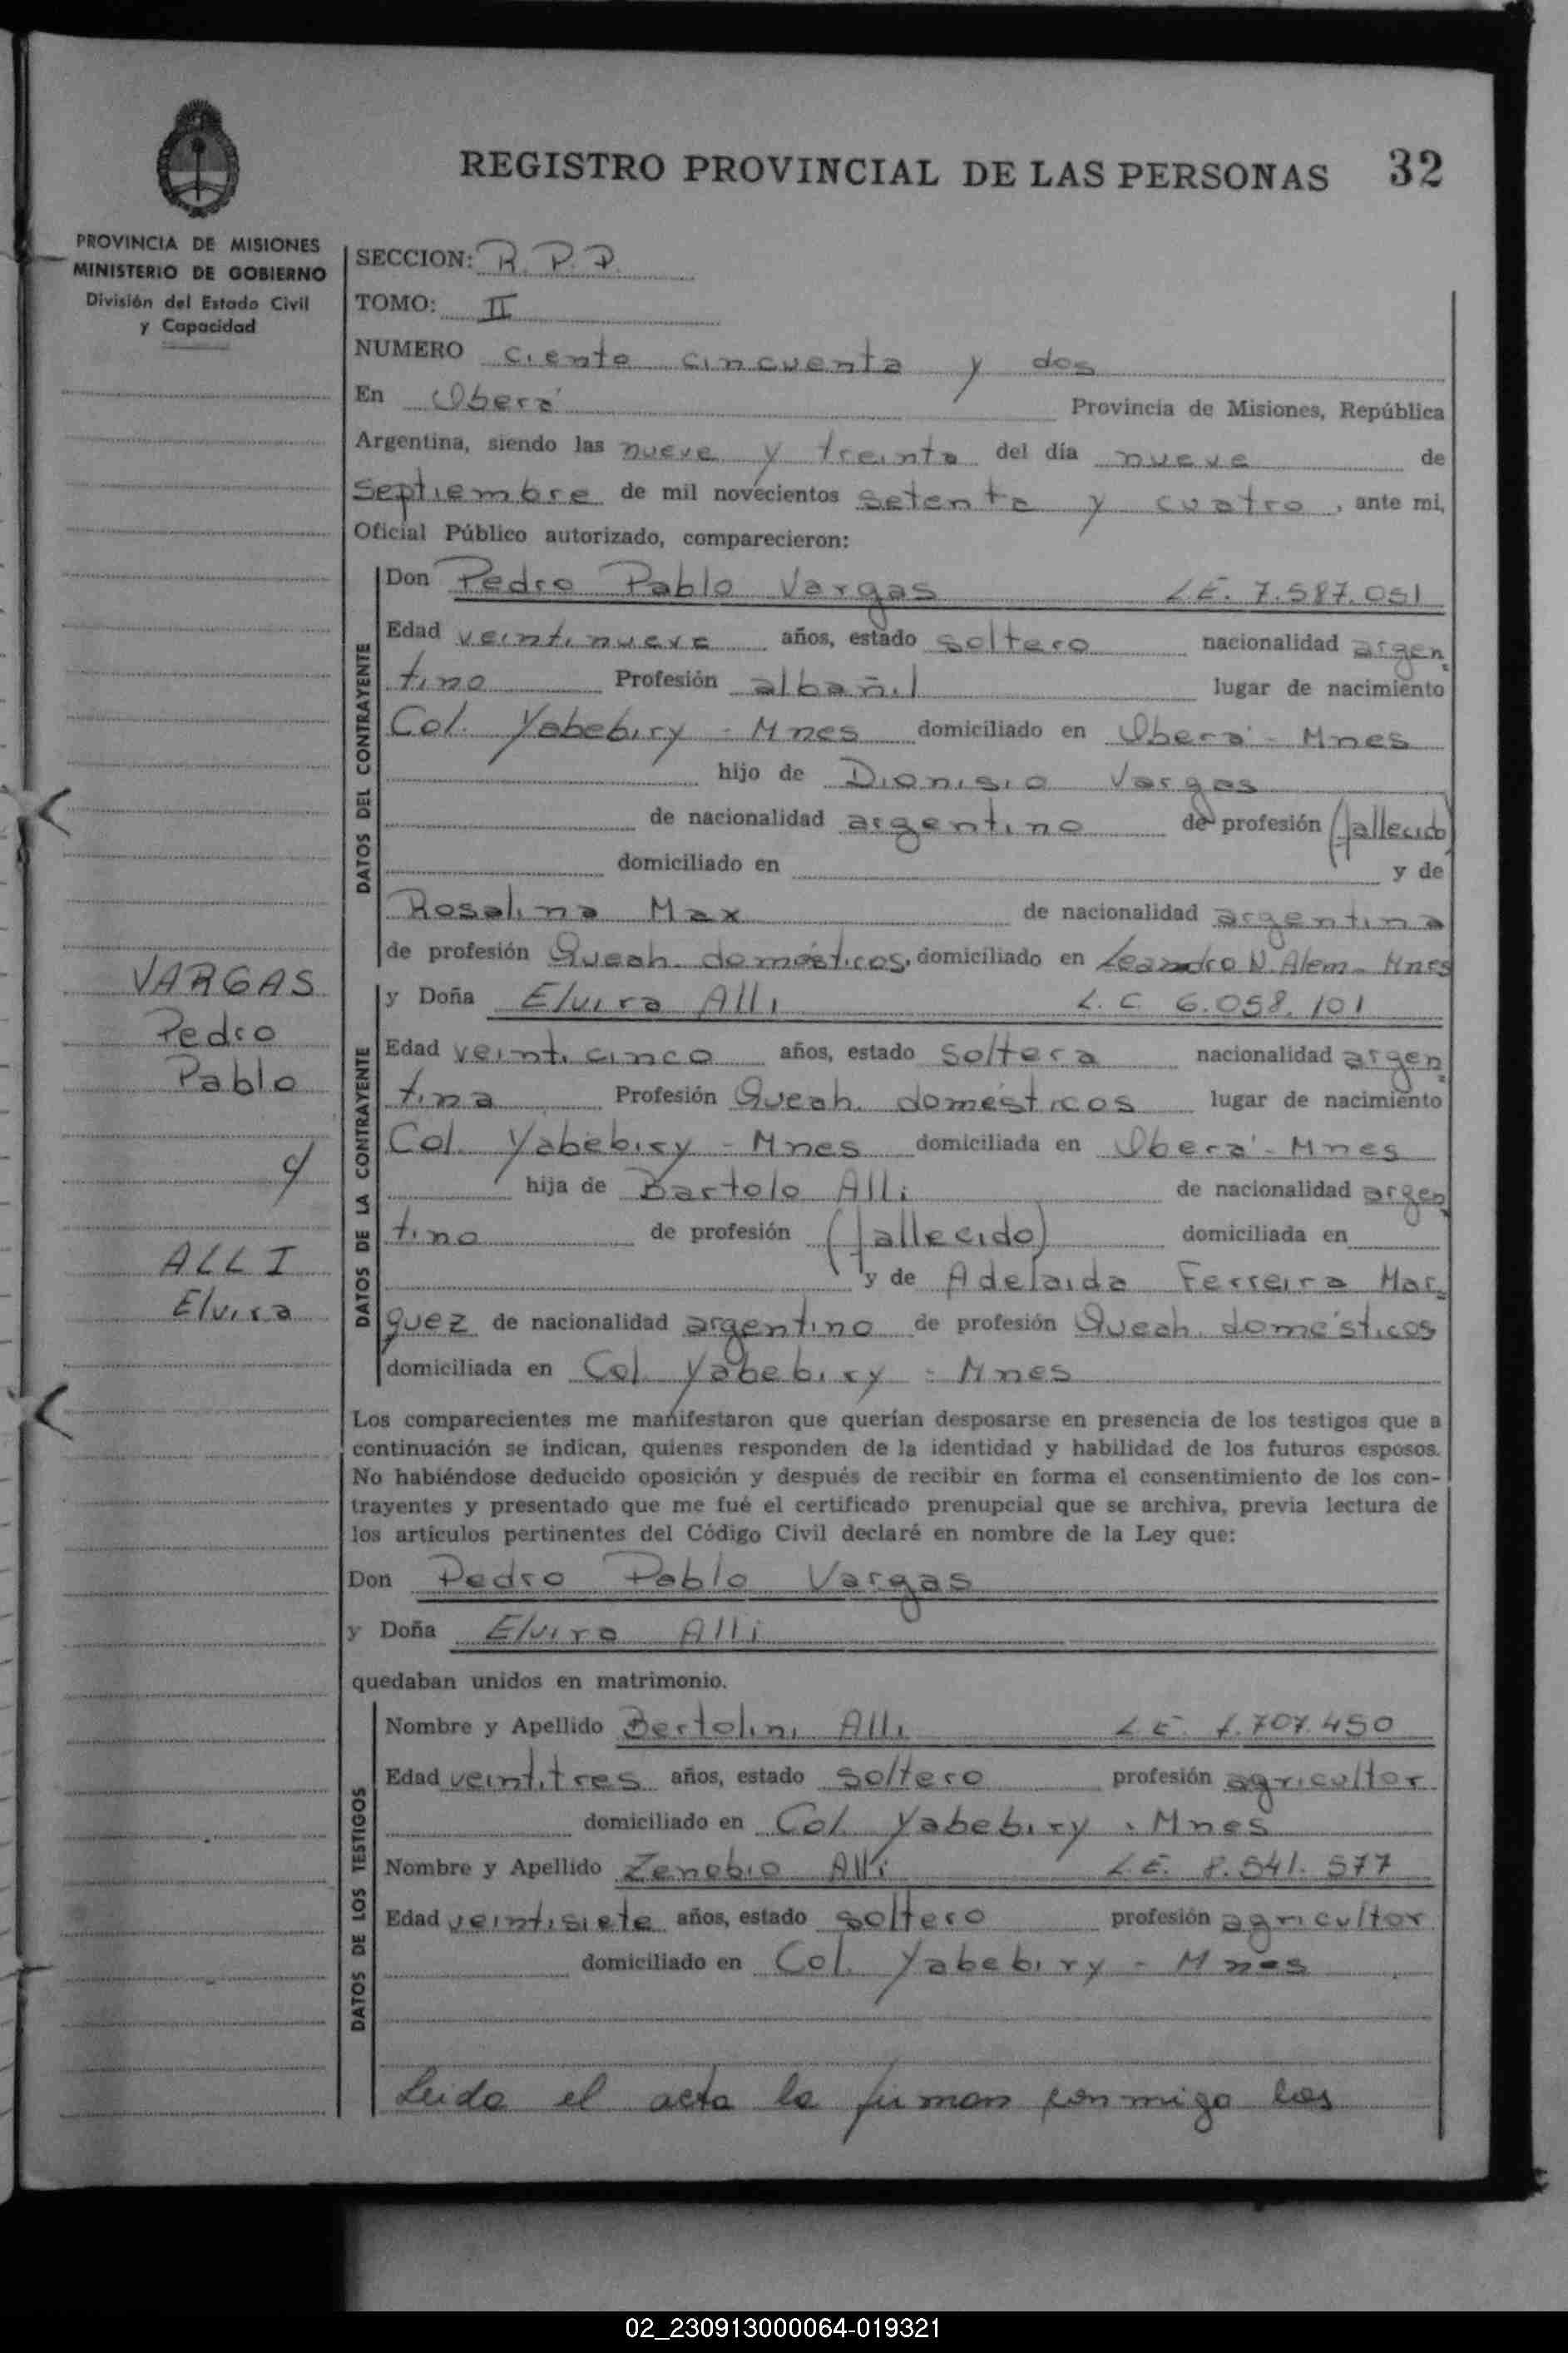 REGISTRO PROVINCIAL DE LAS PERSONAS 32
PROVINCIA DE MISIONES
MINISTERIO DE GOBIERNO
División del Estado Civil
y Capacidad
SECCION: R. P. P.
TOMO: II
NUMERO ciento cincuenta y dos
En Oberá Provincia de Misiones, República
Argentina, siendo las nueve y treinta del día nueve de
septiembre de mil novecientos setenta y cuatro, ante mi,
Oficial Público autorizado, comparecieron:
DATOS DEL CONTRAYENTE
Don Pedro Pablo Vargas L.E. 7.587.051
Edad veintinueve años, estado soltero nacionalidad argen
tino Profesión albañil lugar de nacimiento
Col. Yabebiry - Mnes domiciliado en Oberá - Mnes
hijo de Dionisio Vargas
de nacionalidad argentino de profesión (fallecido)
domiciliado en y de
Rosalina Max de nacionalidad argentina
de profesión Queah. domésticos, domiciliado en Leandro N. Alem - Mnes
VARGAS
Pedro
Pablo
y
ALLI
Elvira
DATOS DE LA CONTRAYENTE
y Doña Elvira Alli L. C 6.058.101
Edad veinticinco años, estado soltera nacionalidad argen
tina Profesión Queah. domésticos lugar de nacimiento
Col. Yabebiry - Mnes domiciliada en Oberá - Mnes
hija de Bartolo Alli de nacionalidad argen
tino de profesión (fallecido) domiciliada en
y de Adelaida Ferreira Mar
quez de nacionalidad argentino de profesión Queah. domésticos
domiciliada en Col. Yabebiry - Mnes
Los comparecientes me manifestaron que querían desposarse en presencia de los testigos que a
continuación se indican, quienes responden de la identidad y habilidad de los futuros esposos.
No habiéndose deducido oposición y después de recibir en forma el consentimiento de los con-
trayentes y presentado que me fué el certificado prenupcial que se archiva, previa lectura de
los artículos pertinentes del Código Civil declaré en nombre de la Ley que:
Don Pedro Pablo Vargas
y Doña Elvira Alli
quedaban unidos en matrimonio.
DATOS DE LOS TESTIGOS
Nombre y Apellido Bertolini Alli L.E.
Edad veintitres años, estado soltero profesión agricultor
domiciliado en Col. Yabebiry - Mnes
Nombre y Apellido Zenobio Alli L.E. 8.541.577
Edad veintisiete años, estado soltero profesión agricultor
domiciliado en Col. Yabebiry - Mnes
Leida el acta la firman conmigo los
02_230913000064-019321